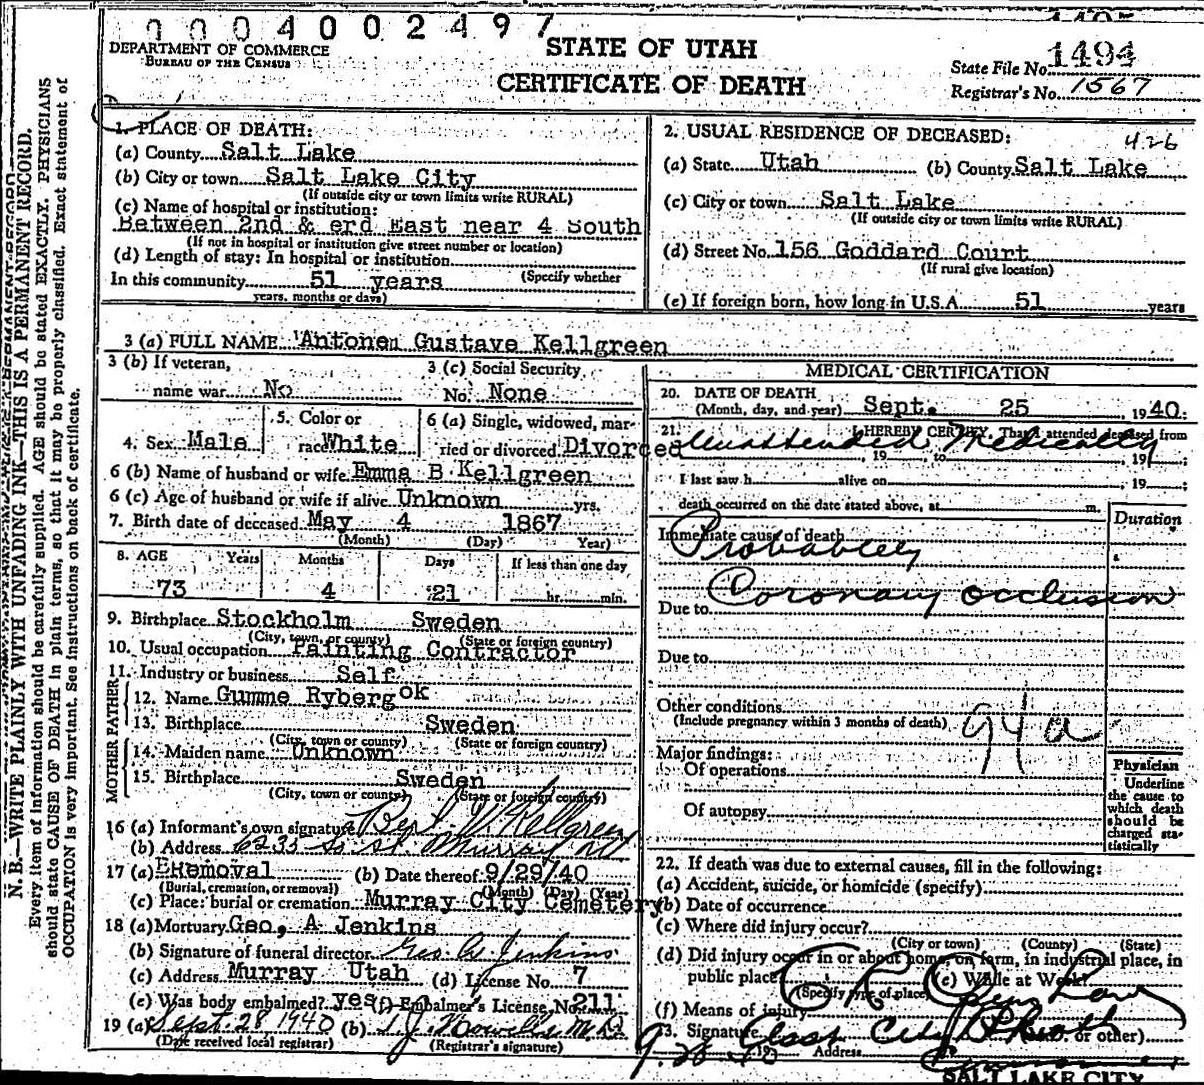 0004002497
1494
DEPARTMENT OF COMMERCE
BUREAU OF THE CENSUS
STATE OF UTAH
CERTIFICATE OF DEATH
State File No. 1494
Registrar's No. 1567
N. B.—WRITE PLAINLY WITH UNFADING INK—THIS IS A PERMANENT RECORD.
Every item of information should be carefully supplied. AGE should be stated EXACTLY. PHYSICIANS
should state CAUSE OF DEATH in plain terms, so that it may be properly classified. Exact statement of
OCCUPATION is very important. See instructions on back of certificate.
1. PLACE OF DEATH:
(a) County Salt Lake
(b) City or town Salt Lake City
(If outside city or town limits write RURAL)
(c) Name of hospital or institution:
Between 2nd & erd East near 4 South
(If not in hospital or institution give street number or location)
(d) Length of stay: In hospital or institution
(Specify whether
In this community 51 years
years, months or days)
2. USUAL RESIDENCE OF DECEASED:
426
(a) State Utah (b) County Salt Lake
(c) City or town Salt Lake
(If outside city or town limits write RURAL)
(d) Street No. 156 Goddard Court
(If rural give location)
(e) If foreign born, how long in U.S.A. 51 years
3 (a) FULL NAME Antonem Gustave Kellgreen
3 (b) If veteran,
name war No
3 (c) Social Security
No. None
4. Sex Male
5. Color or
race White
6 (a) Single, widowed, mar-
ried or divorced Divorced
6 (b) Name of husband or wife Emma B Kellgreen
6 (c) Age of husband or wife if alive Unknown yrs.
7. Birth date of deceased May 4 1867
(Month) (Day) Year)
8. AGE Years Months Days If less than one day
73 4 21 hr. min.
9. Birthplace Stockholm Sweden
(City, town, or county) (State or foreign country)
10. Usual occupation Painting Contractor
11. Industry or business Self
FATHER
12. Name Gumme Ryberg ok
13. Birthplace Sweden
(City, town or county) (State or foreign country)
MOTHER
14. Maiden name Unknown
15. Birthplace Sweden
(City, town or county) (State or foreign country)
16 (a) Informant's own signature Bert W Kellgreen
(b) Address 6235 So St. Murray Ut
17 (a) Removal (b) Date thereof 9/29/40
(Burial, cremation, or removal) (Month) (Day) (Year)
(c) Place: burial or cremation Murray City Cemetery
18 (a) Mortuary Geo, A Jenkins
(b) Signature of funeral director Geo. A Jenkins
(c) Address Murray Utah (d) License No. 7
(e) Was body embalmed? yes (f) Embalmer's License No. 211
19 (a) Sept. 28 1940 (b) T.J. Howells M.D.
(Date received local registrar) (Registrar's signature)
MEDICAL CERTIFICATION
20. DATE OF DEATH
(Month, day, and year) Sept. 25 1940:
21. I HEREBY CERTIFY, That I attended deceased from
Unattended Medically
, 19 to , 19 ;
I last saw h alive on , 19 ;
death occurred on the date stated above, at m.
Duration
Immediate cause of death
Probabley
Coronary occlusion
Due to
Due to
Other conditions
(Include pregnancy within 3 months of death)
94a
Major findings:
Of operations
Of autopsy
Physician
Underline
the cause to
which death
should be
charged sta-
tistically
22. If death was due to external causes, fill in the following:
(a) Accident, suicide, or homicide (specify)
(b) Date of occurrence
(c) Where did injury occur?
(City or town) (County) (State)
(d) Did injury occur in or about home, on farm, in industrial place, in
public place
(Specify type of place) (e) While at Work?
(f) Means of injury
23. Signature Asst City (M.D. or other)
9.28.40 Address
SALT LAKE CITY